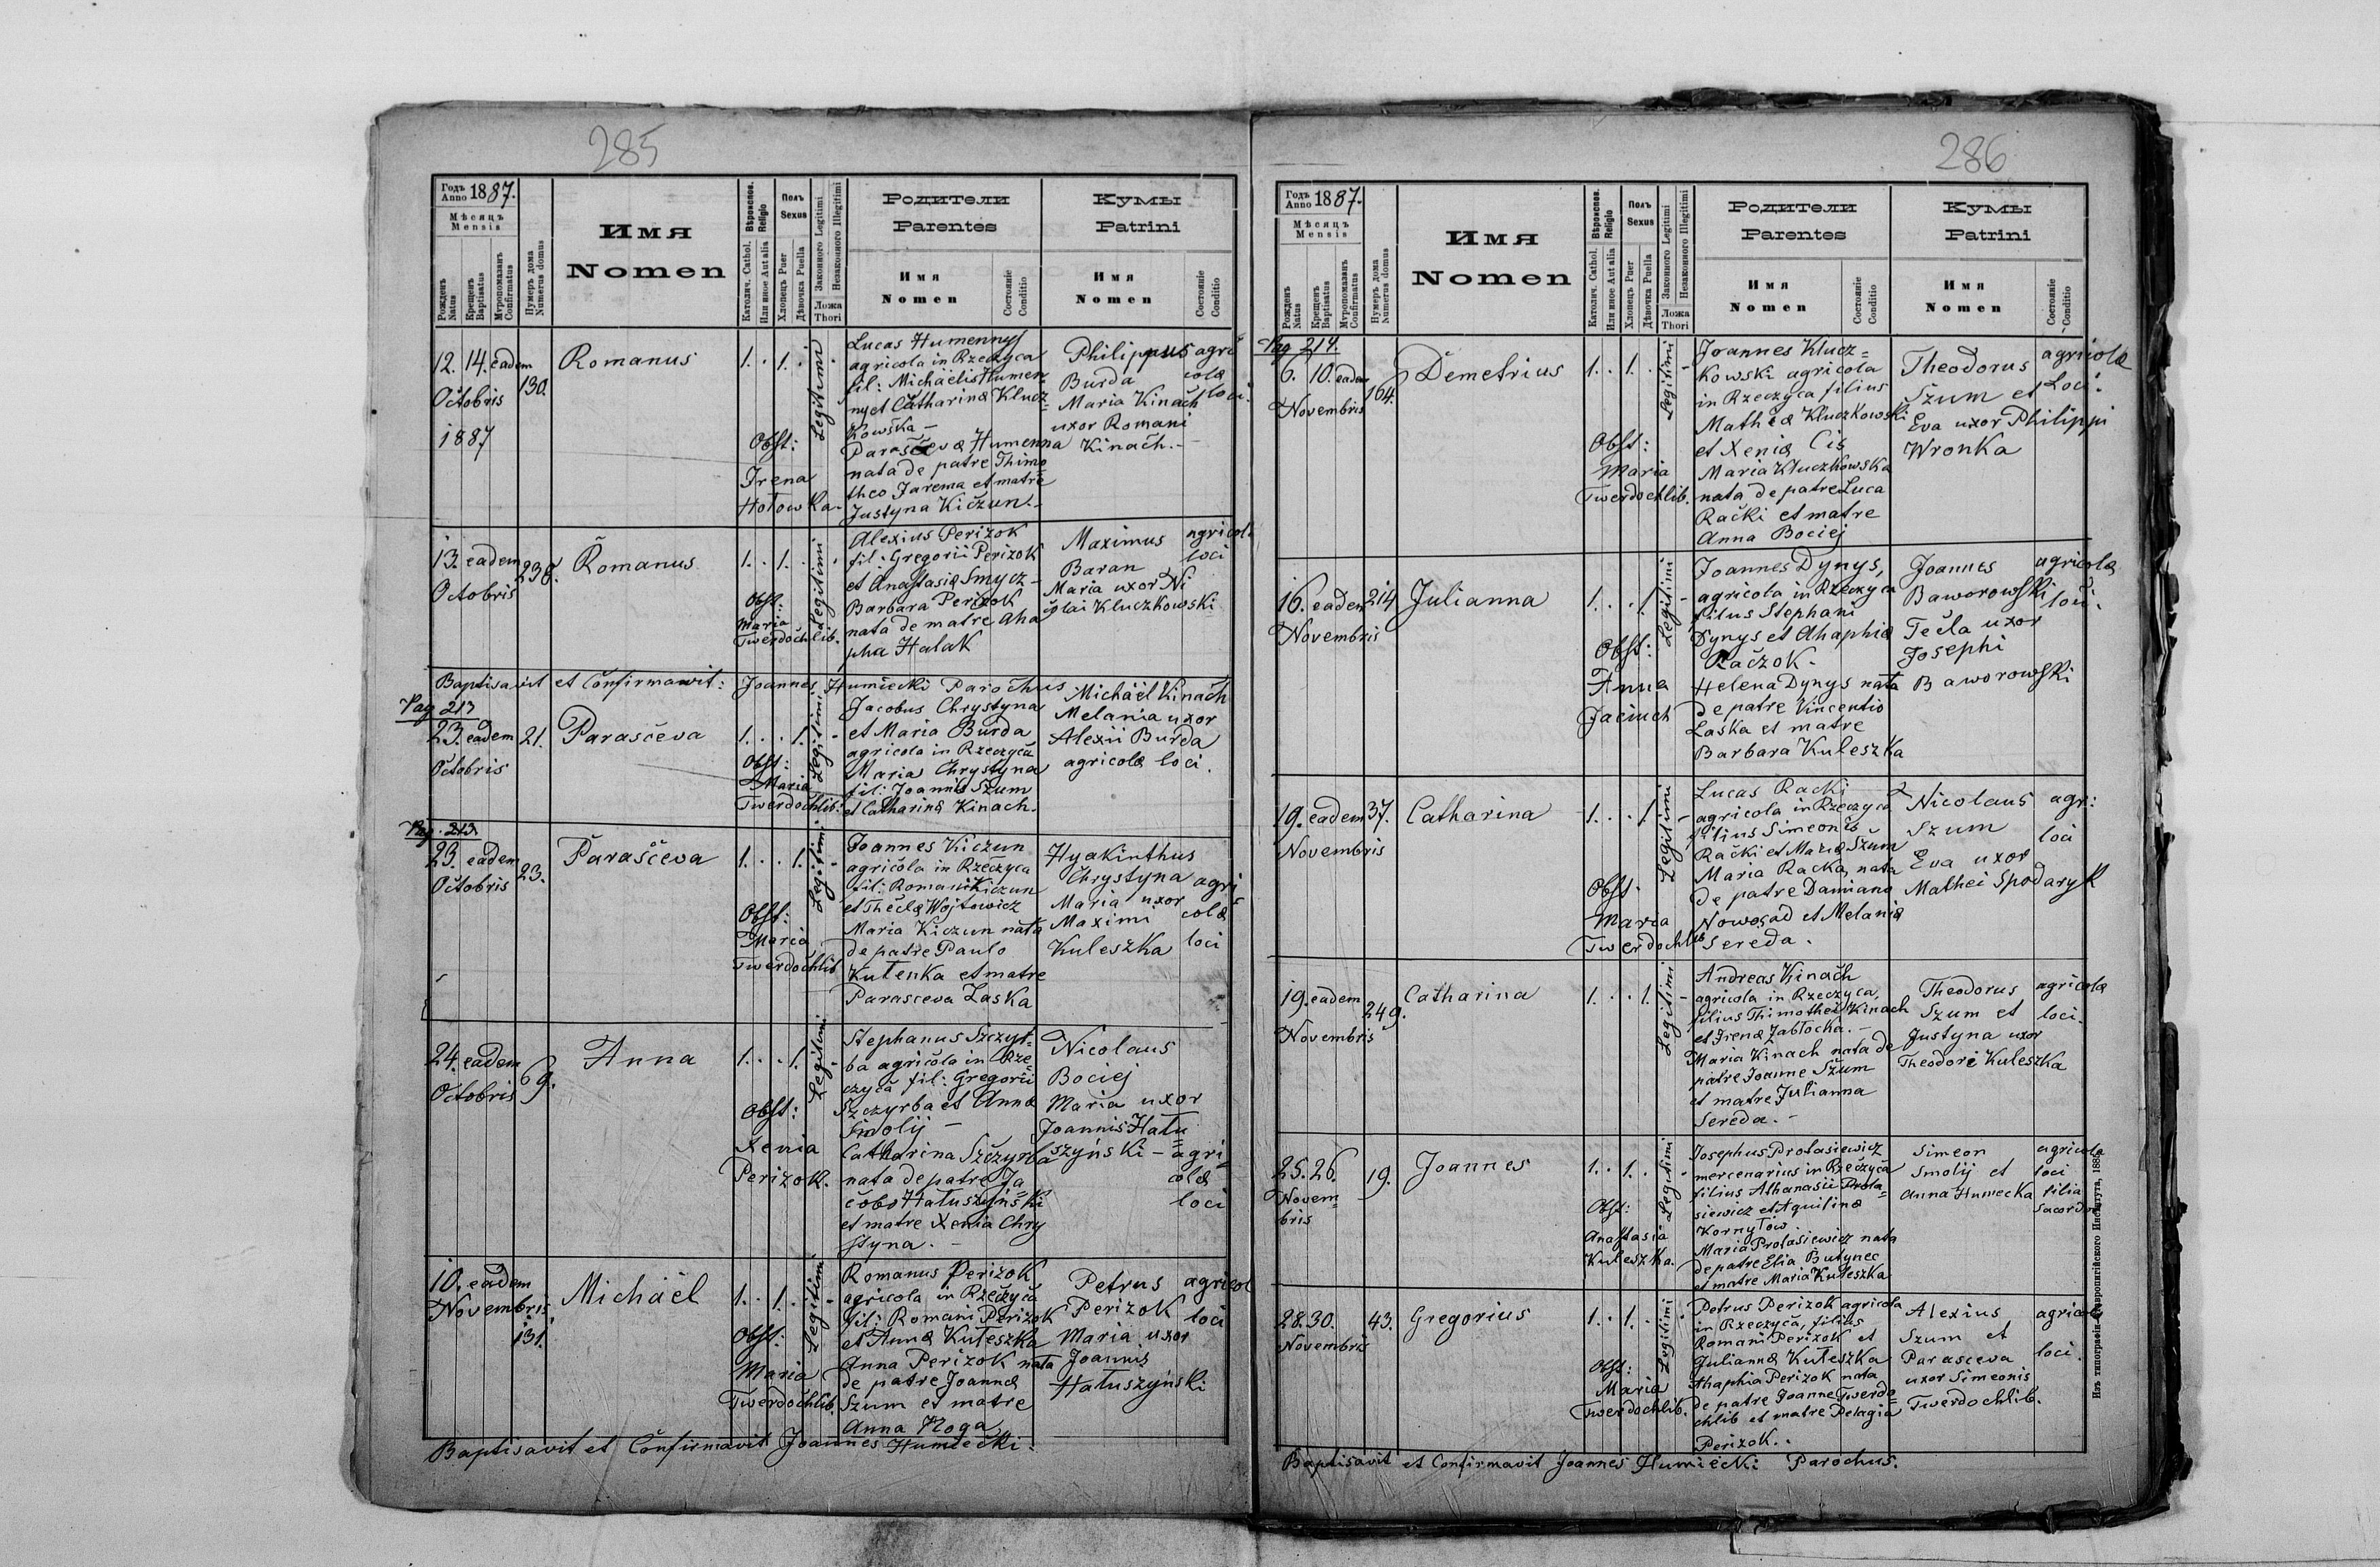 285
Годъ Anno 1887.
Мѣсяцъ
Mensis
Рожденъ Natus
Крещенъ Baptisatus
Мѵропомазанъ Confirmatus
Нумеръ дома Numerus domus
Имя
Nomen
Вѣроиспов. Religio
Католич. Cathol.
Или иное Aut alia
Полъ
Sexus
Хлопецъ Puer
Дѣвочка Puella
Законного Legitimi
Незаконного Illegitimi
Ложа
Thori
Родители
Parentes
Имя
Nomen
Состояніе
Conditio
Кумы
Patrini
Имя
Nomen
Состояніе
Conditio
12. 14. eadem
Octobris
1887
130.
Romanus
1. . 1. .
Legitimi
Obst:
Irena
Hołowka.
Lucas Humennyj
agricola in Rzeczyca
fil: Michaelis Humen
ny et Catharinæ Klucz=
kowska –
Parasceva Humenna
nata de patre Thimo
theo Jarema et matre
Justyna Kiczun.–
Philippus agri
Burda colæ
Maria Kinach loci.
uxor Romani
Kinach.–
13. eadem
Octobris
238.
Romanus
1. . 1. .
Legitimi
Obst:
Maria
Twerdochlib.
Alexius Perizok
fil: Gregorii Perizok
et Anastasiæ Smycz–
Barbara Perizok
nata de matre Aha
pha Halak
Maximus agricolæ
Baran loci
Maria uxor Ni
colai Kluczkowski
Baptisavit et Confirmavit: Joannes Humiecki Parochus
Pag 213
23. eadem
Octobris
21.
Parasceva
1. . . 1.
Legitimi
Obst:
Maria
Twerdochlib.
Jacobus Chrystyna
et Maria Burda
agricola in Rzeczyca
Maria Chrystyna
fil: Joannis Szum
et Catharinæ Kinach.
Michaël Kinach
Melania uxor
Alexii Burda
agricolæ loci.
Pag. 213
23. eadem
Octobris
23.
Parasceva
1. . . 1.
Legitimi
Obst:
Maria
Twerdochlib
Joannes Kiczun
agricola in Rzeczyca
fil: Romani Kiczun
et Theclæ Wojtowicz
Maria Kiczun nata
de patre Paulo
Kułenka et matre
Parasceva Laska
Hyakinthus
Chrystyna agri
Maria uxor
Maximi colæ
Kuleszka loci
24. eadem
Octobris
69.
Anna
1. . . 1.
Legitimi
Obst:
Xenia
Perizok.
Stephanus Szczyr=
ba agricola in Rze
czyca fil: Gregorii
Szczyrba et Annæ
Smolij –
Catharina Szczyrba
nata de patre Ja
cobo Hałuszyński
et matre Xenia Chry
styna. –
Nicolaus
Bociej
Maria uxor
Joannis Hału
szyński – agri
colæ
loci
10. eadem
Novembris
131.
Michaël
1. . 1. .
Legitimi
Obst:
Maria
Twerdochlib.
Romanus Perizok
agricola in Rzeczyca
fil: Romani Perizok
et Annæ Kułeszka
Anna Perizok nata
de patre Joanne
Szum et matre
Anna Noga
Petrus agricol
Perizok loci
Maria uxor
Joannis
Hałuszyński
Baptisavit et Confirmavit Joannes Humiecki.
286
Годъ Anno 1887.
Мѣсяцъ
Mensis
Рожденъ Natus
Крещенъ Baptisatus
Мѵропомазанъ Confirmatus
Нумеръ дома Numerus domus
Имя
Nomen
Вѣроиспов. Religio
Католич. Cathol.
Или иное Aut alia
Полъ
Sexus
Хлопецъ Puer
Дѣвочка Puella
Законного Legitimi
Незаконного Illegitimi
Ложа
Thori
Родители
Parentes
Имя
Nomen
Состояніе
Conditio
Кумы
Patrini
Имя
Nomen
Состояніе
Conditio
Pag 214.
6. 10. eadem
Novembris
164.
Demetrius
1. . 1. .
Legitimi
Obst:
Maria
Twerdochlib.
Joannes Klucz=
kowski agricola
in Rzeczyca filius
Mathæi Kluczkowski
et Xeniæ Cis
Maria Kluczkowska
nata de patre Luca
Racki et matre
Anna Bociej
Theodorus agricolæ
Szum et Loci.
Eva uxor Philippi
Wronka
16. eadem
Novembris
214
Julianna
1. . . 1.
Legitimi
Obst:
Anna
Jaciuch
Joannes Dynys,
agricola in Rzeczyca
filius Stephani
Dynys et Ahaphiæ
Raczok.
Helena Dynys nata
de patre Vincentio
Laska et matre
Barbara Kuleszka
Joannes agricolæ
Baworowski loci.
Tecla uxor
Josephi
Baworowski
19. eadem
Novembris
37.
Catharina
1. . . 1.
Legitimi
Obst.
Maria
Twerdochlib
Lucas Racki
agricola in Rzeczyca
filius Simeonis
Racki et Mariæ Szum
Maria Racka, nata
de patre Damiano
Nowosad et Melania
Sereda.
Nicolaus agr:
Szum loci
Eva uxor
Mathei Spodaryk
19. eadem
Novembris
249.
Catharina
1. . . 1.
Legitimi
Andreas Kinach
agricola in Rzeczyca,
filius Thimothei Kinach
et Irenæ Zabłocka. –
Maria Kinach nata de
patre Joanne Szum
et matre Julianna
Sereda. –
Theodorus agricolæ
Szum et loci.
Justyna uxor
Theodori Kuleszka
25. 26.
Novem=
bris
19.
Joannes
1. . 1. .
Legitimi
Obst:
Anastasia
Kuleszka.
Josephus Protasiewicz
mercenarius in Rzeczyca
filius Athanasii Prota=
siewicz et Aquilinæ
Kornyłow.
Maria Protasiewicz nata
de patre Elia Butynec
et matre Maria Kułeszka
Simeon agricola
Smolij et loci
Anna Humecka filia
Sacerdo
28. 30.
Novembris
43.
Gregorius
1. . 1. .
Legitimi
Obst:
Maria
Twerdochlib.
Petrus Perizok agricola
in Rzeczyca, filius
Romani Perizok et
Juliannæ Kułeszka
Ahaphia Perizok nata
de patre Joanne Twerdo
chlib et matre Pelagia
Perizok.
Alexius agricolæ
Szum et
Parasceva loci.
uxor Simeonis
Twerdochlib.
Baptisavit et Confirmavit Joannes Humiecki Parochus.
Изъ типографіи Ставропигійского Института, 188